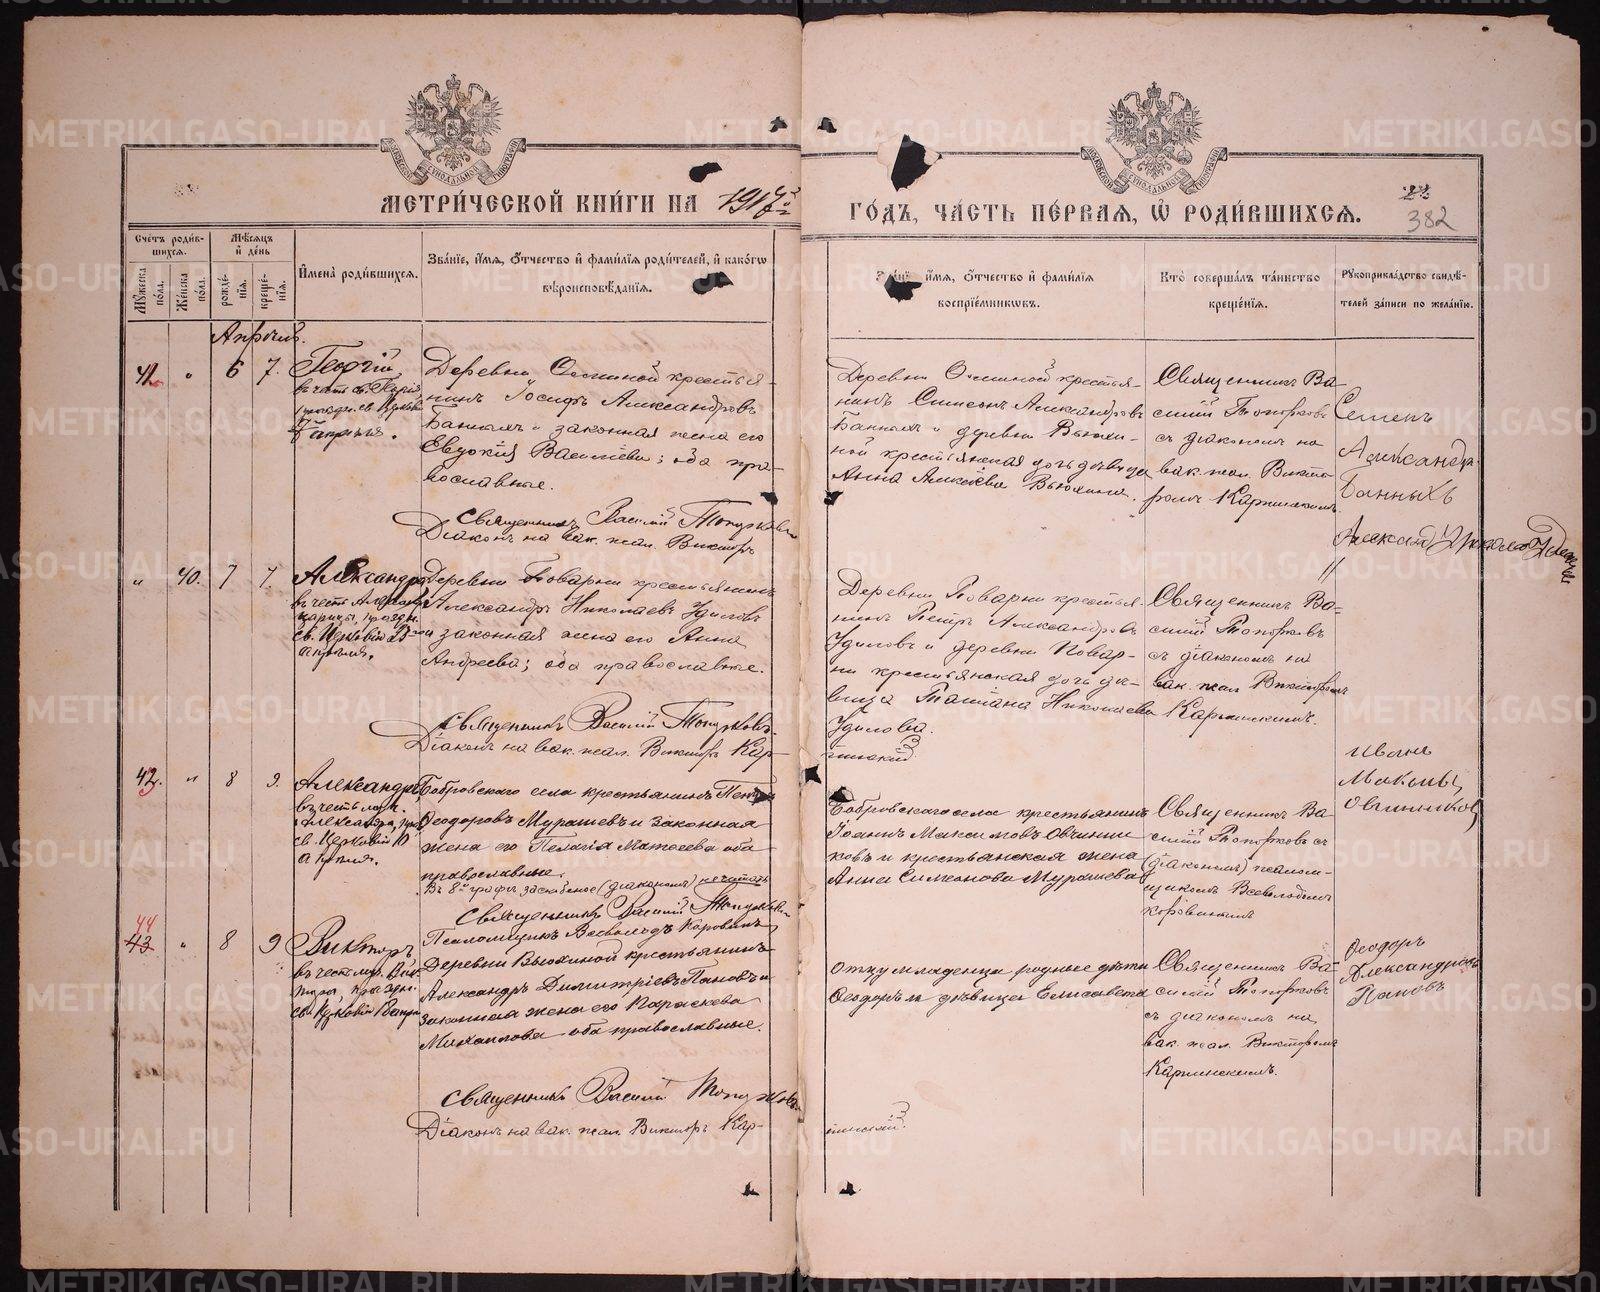 МЕТРИ́ЧЕСКОЙ КНИ́ГИ НА 1917й
ГО́ДЪ, ЧА́СТЬ ПЕ́РВАЯ, Ѽ РОДИ́ВШИХСЯ.
382
Сче́тъ роди́в-
шихся.
Мѣ́сяцъ
и҆ де́нь
Мꙋ́жеска
по́ла.
Же́нска
по́ла.
рожде́-
нїя.
креще́-
нїя.
И҆мена̀ роди́вшихся.
Зва́нїе, и҆́мя, ѻ҆́тчество и҆ фами́лїя роди́телей, и҆ како́гѡ
вѣроисповѣ́данїя.
Зва́нїе, и҆́мя, ѻ҆́тчество и҆ фами́лїя
воспрїе́мникѡвъ.
Кто̀ соверша́лъ та́инство
креще́нїя.
Рꙋкоприкла́дство свидѣ́-
телей за́писи по жела́нїю.
Апрѣль.
6 7.
Георгій,
Деревни Осиной крестья-
нинъ Іосифъ Александровъ
Банныхъ и законная жена его
Евдокія Васильева; оба пра-
вославные.
Священникъ Василій Топорковъ
Діаконъ на вак. псал. Викторъ
Деревни Осиной крестья-
нинъ Симеонъ Александровъ
Банныхъ и деревни Вьюхи-
ной крестьянская дочь дѣвица
Анна Алексѣева Вьюхина.
Священникъ Ва-
силій Топорковъ
съ діакономъ на
вак. псал. Викто-
ромъ Карпинскимъ.
Семенъ
Александр.
Банныхъ
„ 40. 7 7.
Александра
въ честь Александры
царицы, праздн.
св. Церковію 23го
апрѣля.
Деревни Поварни крестьянинъ
Александръ Николаевъ Удиловъ
и законная жена его Анна
Андреева; оба православные.
Священникъ Василій Топорковъ.
Діаконъ на вак. псал. Викторъ Кар-
Деревни Поварни крестья-
нинъ Петръ Александровъ
Удиловъ и деревни Повар-
ни крестьянская дочь дѣ-
вица Татіана Николаева
Удилова.
пинскій
Священникъ Ва-
силій Топорковъ
съ діакономъ на
вак. псал. Викторомъ
Карпинскимъ.
„ 8 9.
Александръ,
въ честь муч.
Александра, праз.
св. Церковію 10
апрѣля.
Бобровскаго села крестьянинъ Петръ
Ѳеодоровъ Мурашевъ и законная
жена его Пелагія Матѳеева оба
православные.
Въ 8й графѣ зачеркнутое (діакономъ) не читать
Священникъ Василій Топорковъ
Псаломщикъ Всеволодъ Коровинъ
Бобровскаго села крестьянинъ
Іоаннъ Максимовъ Овчинни-
ковъ и крестьянская жена
Анна Симеонова Мурашева
Священникъ Ва-
силій Топорковъ съ
(діакономъ) псалом-
щикомъ Всеволодомъ
Коровинымъ
Иванъ
Максим.
Овчинников
44
43 „ 8 9
Викторъ
въ честь муч. Вик-
тора, праздн.
св. Церковію 18 апр.
Деревни Вьюхиной крестьянинъ
Александръ Димитріевъ Пановъ и
законная жена его Параскева
Михаилова оба православные.
Священникъ Василій Топорковъ
Діаконъ на вак. псал. Викторъ Кар-
Отцу младенца родные дѣти
Ѳеодоръ и дѣвица Елисавета
пинскій.
Священникъ Ва-
силій Топорковъ
съ діакономъ на
вак. псал. Викторомъ
Карпинскимъ.
Ѳеодоръ
Александровъ
Пановъ
METRIKI.GASO-URAL.RU